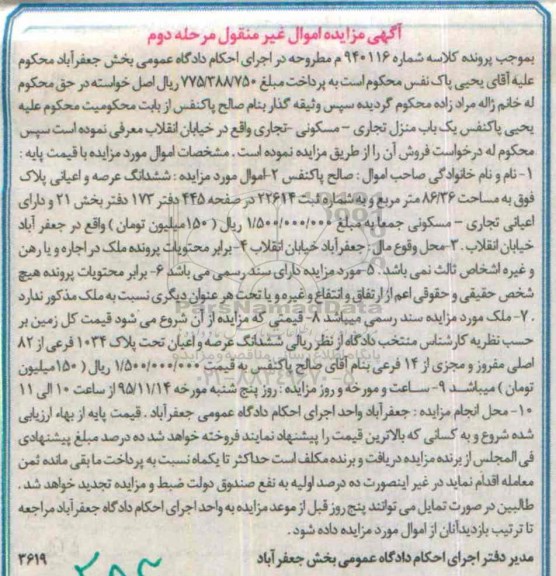 آگهی مزایده اموال غیر منقول مرحله دوم
بموجب پرونده کلاسه شماره ۹۴۰۱۱۶ م مطروحه در اجرای احکام دادگاه عمومی بخش جعفرآباد محکوم
علیه آقای یحیی پاک نفس محکوم است به پرداخت مبلغ ۷۷۵/۳۸۸/۷۵۰ ریال اصل خواسته در حق محکوم
له خانم ژاله مراد زاده محکوم گردیده سپس وثیقه گذار بنام صالح پاکنفس از بابت محکومیت محکوم علیه
یحیی پاکنفس یک باب منزل تجاری - مسکونی -تجاری واقع در خیابان انقلاب معرفی نموده است سپس
محکوم له درخواست فروش آن را از طریق مزایده نموده است . مشخصات اموال مورد مزایده با قیمت پایه :
۱- نام و نام خانوادگی صاحب اموال : صالح پاکنفس ۲-اموال مورد مزایده : ششدانگ عرصه و اعیانی پلاک
فوق به مساحت ۸۶/۳۶ متر مربع و به شماره ثبت ۲۲۶۱۴ در صفحه ۴۴۵ دفتر ۱۷۳ دفتر بخش ۲۱ و دارای
اعیانی تجاری - مسکونی جمعا به مبلغ ۱/۵۰۰/۰۰۰/۰۰۰ ریال ( ۱۵۰میلیون تومان ) واقع در جعفر آباد
خیابان انقلاب . ۳-محل وقوع مال : جعفرآباد خیابان انقلاب ۴- برابر محتویات پرونده ملک در اجاره و یا رهن
و غیره اشخاص ثالث نمی باشد . ۵-مورد مزایده دارای سند رسمی می باشد ۶- برابر محتویات پرونده هیچ
شخص حقیقی و حقوقی اعم از ارتفاق و انتفاع و غیره و یا تحت هر عنوان دیگری نسبت به ملک مذکور ندارد
. ۷- ملک مورد مزایده سند رسمی میباشد ۸- قیمتی که مزایده از آن شروع می شود قیمت کل زمین بر
حسب نظریه کارشناس منتخب دادگاه از نظر ریالی ششدانگ عرصه و اعیان تحت پلاک ۱۰۳۴ فرعی از ۸۲
اصلی مفروز و مجزی از ۱۴ فرعی بنام آقای صالح پاکنفس به قیمت ۱/۵۰۰/۰۰۰/۰۰۰ ریال ( ۱۵۰میلیون
تومان ) میباشد ۹- ساعت و مورخه و روز مزایده : روز پنج شنبه مورخه ۹۵/۱۱/۱۴ از ساعت ۱۰ الی ۱۱
۱۰- محل انجام مزایده : جعفرآباد واحد اجرای احکام دادگاه عمومی جعفرآباد . قیمت پایه از بهاء ارزیابی
شده شروع و به کسانی که بالاترین قیمت را پیشنهاد نمایند فروخته خواهد شد ده درصد مبلغ پیشنهادی
فی المجلس از برنده مزایده دریافت و برنده مکلف است حداکثر تا یکماه نسبت به پرداخت مابقی مانده ثمن
معامله اقدام نماید در غیر اینصورت ده درصد اولیه به نفع صندوق دولت ضبط و مزایده تجدید خواهد شد .
طالبین در صورت تمایل می توانند پنج روز قبل از موعد مزایده به واحد اجرای احکام دادگاه جعفرآباد مراجعه
تا ترتیب بازدیدآنان از اموال مورد مزایده داده شود .
مدیر دفتر اجرای احکام دادگاه عمومی بخش جعفر آباد
۳۶۱۹
ParsNamadData
پایگاه اطلاع رسانی مناقصه و مزایده